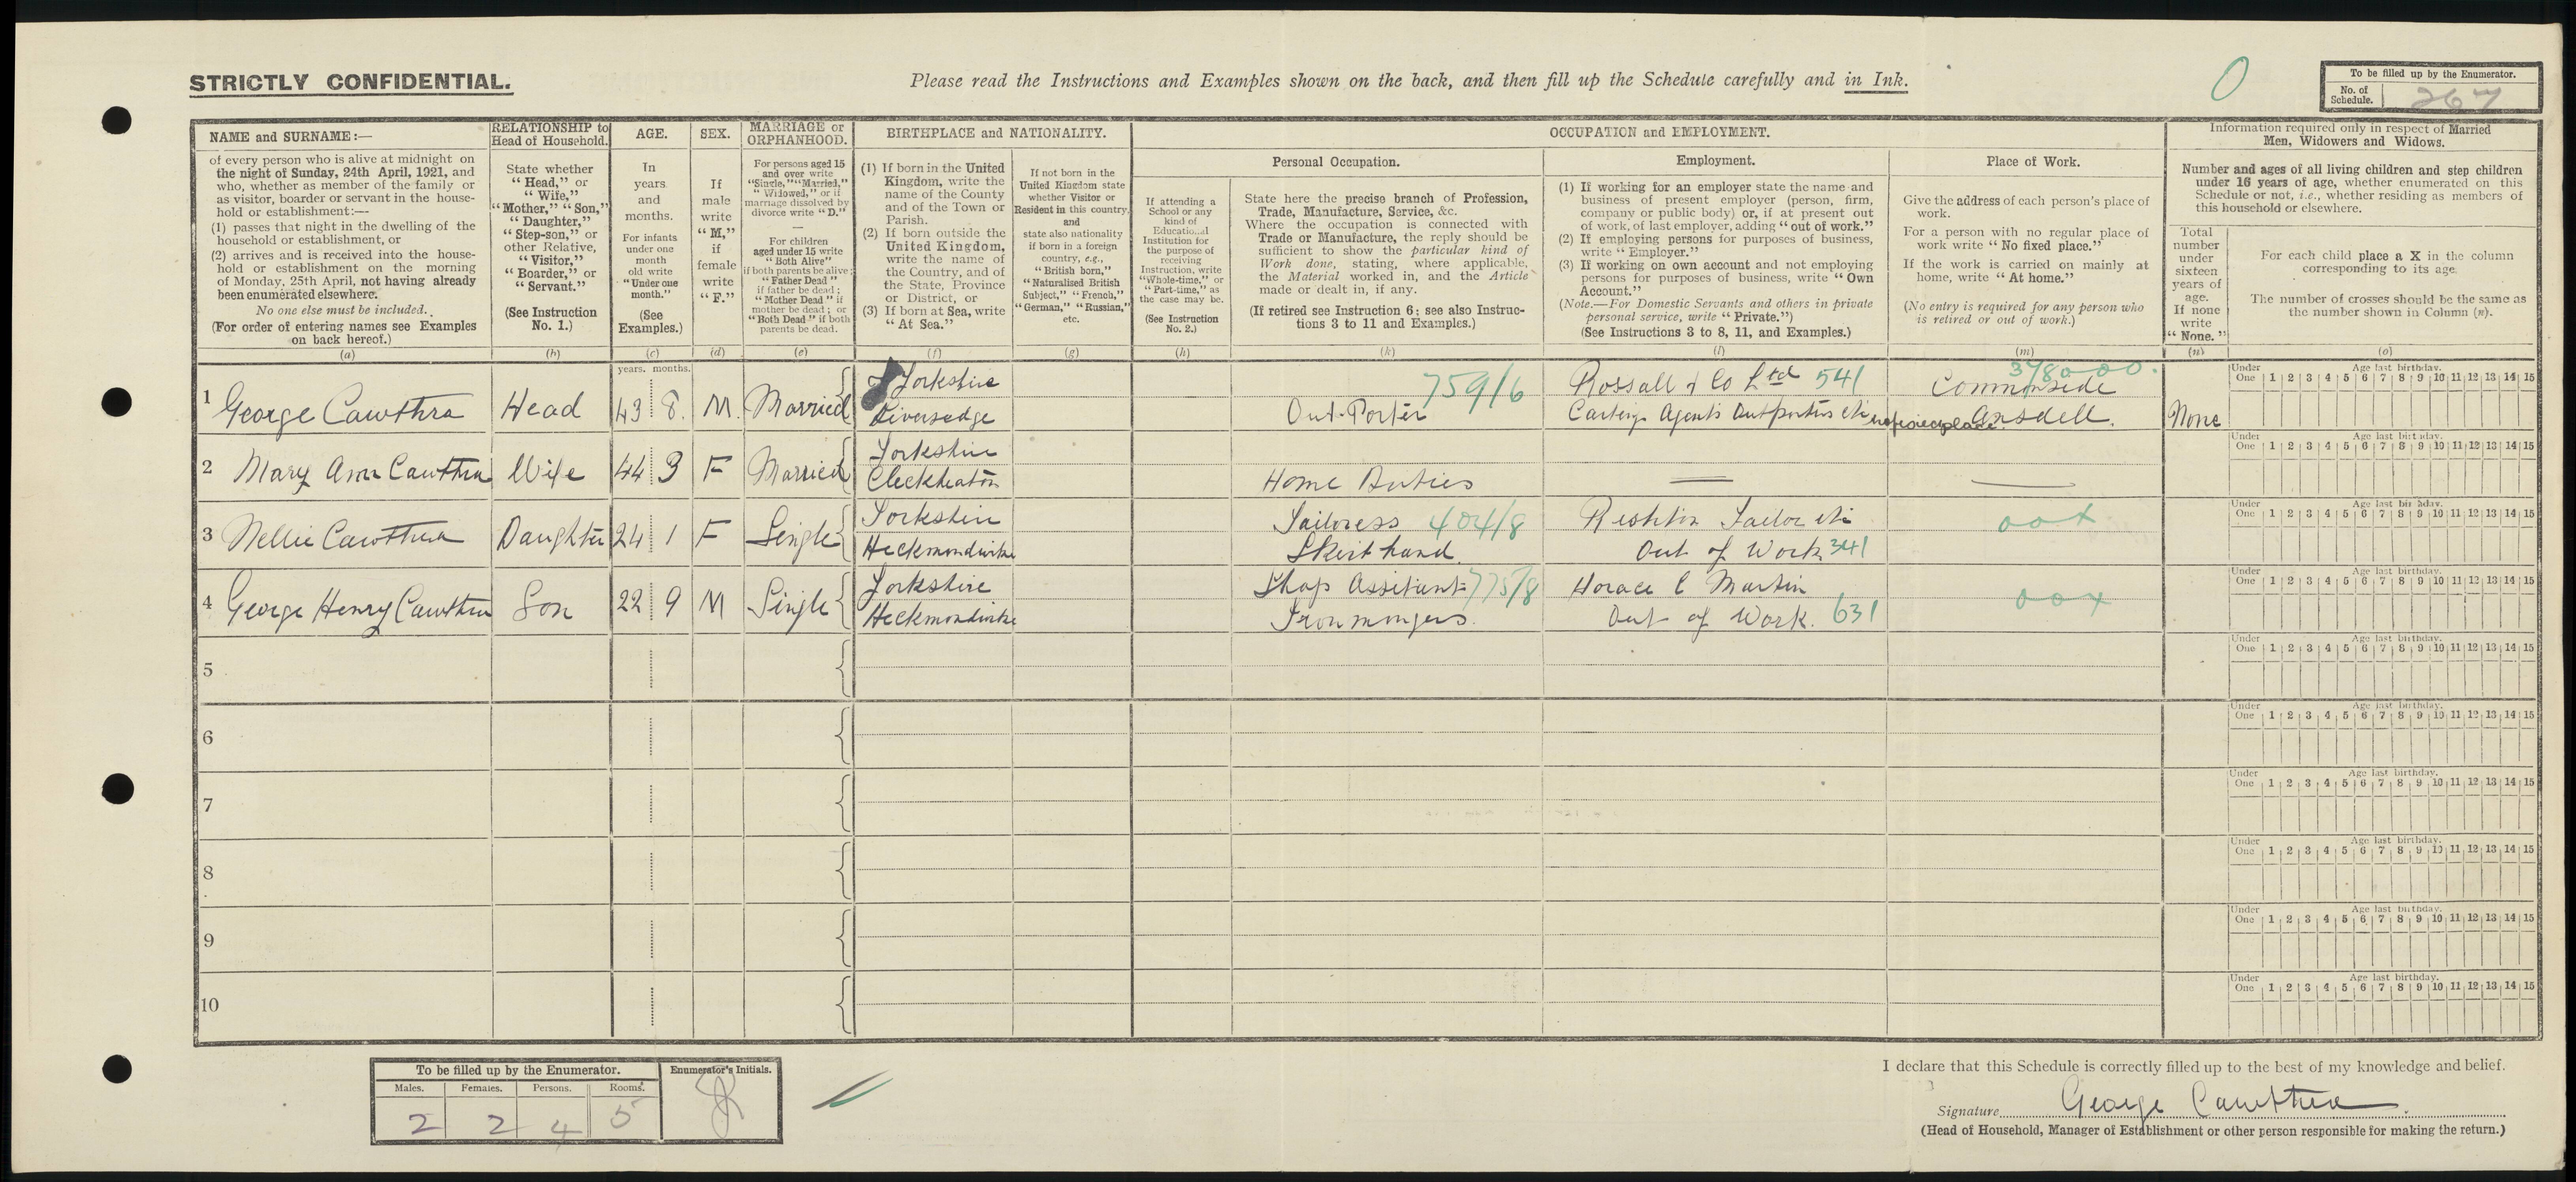 STRICTLY CONFIDENTIAL.
Please read the Instructions and Examples shown on the back, and then fill up the Schedule carefully and in Ink.
0
To be filled up by the Enumerator.
No. of Schedule. 267
NAME and SURNAME:—
of every person who is alive at midnight on
the night of Sunday, 24th April, 1921, and
who, whether as member of the family or
as visitor, boarder or servant in the house-
hold or establishment:—
(1) passes that night in the dwelling of the
household or establishment, or
(2) arrives and is received into the house-
hold or establishment on the morning
of Monday, 25th April, not having already
been enumerated elsewhere.
No one else must be included.
(For order of entering names see Examples
on back hereof.)
(a)
RELATIONSHIP to
Head of Household.
State whether
"Head," or
"Wife,"
"Mother," "Son,"
"Daughter,"
"Step-son," or
other Relative,
"Visitor,"
"Boarder," or
"Servant."
(See Instruction
No. 1.)
(b)
AGE.
In
years
and
months.
For infants
under one
month
old write
"Under one
month."
(See
Examples.)
(c)
SEX.
If
male
write
"M,"
if
female
write
"F."
(d)
MARRIAGE or
ORPHANHOOD.
For persons aged 15
and over write
"Single," "Married,"
"Widowed," or if
marriage dissolved by
divorce write "D."
For children
aged under 15 write
"Both Alive"
if both parents be alive;
"Father Dead"
if father be dead;
"Mother Dead" if
mother be dead; or
"Both Dead" if both
parents be dead.
(e)
BIRTHPLACE and NATIONALITY.
(1) If born in the United
Kingdom, write the
name of the County
and of the Town or
Parish.
(2) If born outside the
United Kingdom,
write the name of
the Country, and of
the State, Province
or District, or
(3) If born at Sea, write
"At Sea."
(f)
If not born in the
United Kingdom state
whether Visitor or
Resident in this country,
and
state also nationality
if born in a foreign
country, e.g.,
"British born,"
"Naturalised British
Subject," "French,"
"German," "Russian,"
etc.
(g)
OCCUPATION and EMPLOYMENT.
If attending a
School or any
kind of
Educational
Institution for
the purpose of
receiving
Instruction, write
"Whole-time," or
"Part-time," as
the case may be.
(See Instruction
No. 2.)
(h)
Personal Occupation.
State here the precise branch of Profession,
Trade, Manufacture, Service, &c.
Where the occupation is connected with
Trade or Manufacture, the reply should be
sufficient to show the particular kind of
Work done, stating, where applicable,
the Material worked in, and the Article
made or dealt in, if any.
(If retired see Instruction 6; see also Instruc-
tions 3 to 11 and Examples.)
(k)
Employment.
(1) If working for an employer state the name and
business of present employer (person, firm,
company or public body) or, if at present out
of work, of last employer, adding "out of work."
(2) If employing persons for purposes of business,
write "Employer."
(3) If working on own account and not employing
persons for purposes of business, write "Own
Account."
(Note.—For Domestic Servants and others in private
personal service, write "Private.")
(See Instructions 3 to 8, 11, and Examples.)
(l)
Place of Work.
Give the address of each person's place of
work.
For a person with no regular place of
work write "No fixed place."
If the work is carried on mainly at
home, write "At home."
(No entry is required for any person who
is retired or out of work.)
(m)
Information required only in respect of Married
Men, Widowers and Widows.
Number and ages of all living children and step children
under 16 years of age, whether enumerated on this
Schedule or not, i.e., whether residing as members of
this household or elsewhere.
Total
number
under
sixteen
years of
age.
If none
write
"None."
(n)
For each child place a X in the column
corresponding to its age.
The number of crosses should be the same as
the number shown in Column (n).
(o)
years. months.
1 George Cawthra Head 43 8 M. Married Yorkshire Liversedge Out-Porter 759/6 Rossall & Co Ltd 541 Carting Agents Outporters etc no fixed place 378000 Commonside Ansdell. None
Under One Age last birthday. 1 2 3 4 5 6 7 8 9 10 11 12 13 14 15
2 Mary Ann Cawthra Wife 44 3 F Married Yorkshire Cleckheaton Home Duties
Under One Age last birthday. 1 2 3 4 5 6 7 8 9 10 11 12 13 14 15
3 Nellie Cawthra Daughter 24 1 F Single Yorkshire Heckmondwike Tailoress 404/8 Skirt hand Tailor etc Out of Work 341 00x
Under One Age last birthday. 1 2 3 4 5 6 7 8 9 10 11 12 13 14 15
4 George Henry Cawthra Son 22 9 M Single Yorkshire Heckmondwike Shop Assistant 775/8 Ironmongers. Horace C Martin Out of Work. 631 00x
Under One Age last birthday. 1 2 3 4 5 6 7 8 9 10 11 12 13 14 15
5
Under One Age last birthday. 1 2 3 4 5 6 7 8 9 10 11 12 13 14 15
6
Under One Age last birthday. 1 2 3 4 5 6 7 8 9 10 11 12 13 14 15
7
Under One Age last birthday. 1 2 3 4 5 6 7 8 9 10 11 12 13 14 15
8
Under One Age last birthday. 1 2 3 4 5 6 7 8 9 10 11 12 13 14 15
9
Under One Age last birthday. 1 2 3 4 5 6 7 8 9 10 11 12 13 14 15
10
Under One Age last birthday. 1 2 3 4 5 6 7 8 9 10 11 12 13 14 15
To be filled up by the Enumerator.
Males. Females. Persons. Rooms.
2 2 4 5
Enumerator's Initials.
I declare that this Schedule is correctly filled up to the best of my knowledge and belief.
Signature George Cawthra.
(Head of Household, Manager of Establishment or other person responsible for making the return.)